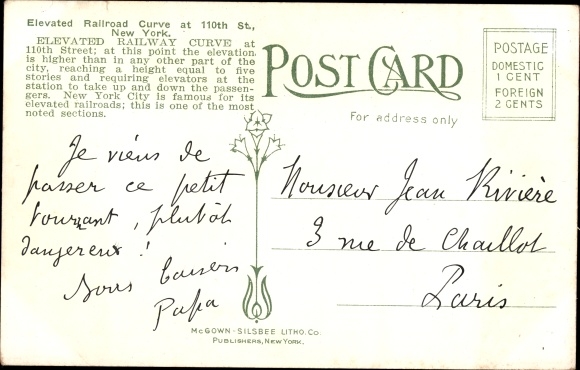 Elevated Railroad Curve at 110th St.,
New York.
ELEVATED RAILWAY CURVE at
110th Street; at this point the elevation
is higher than in any other part of the
city, reaching a height equal to five
stories and requiring elevators at the
station to take up and down the passen-
gers. New York City is famous for its
elevated railroads; this is one of the most
noted sections.
POST CARD
For address only
POSTAGE
DOMESTIC
1 CENT
FOREIGN
2 CENTS
Je viens de
passer ce petit
tournant, plutôt
dangereux !
Bons baisers
Papa
Monsieur Jean Rivière
3 rue de Chaillot
Paris
McGOWN-SILSBEE LITHO. Co.
PUBLISHERS, NEW YORK.